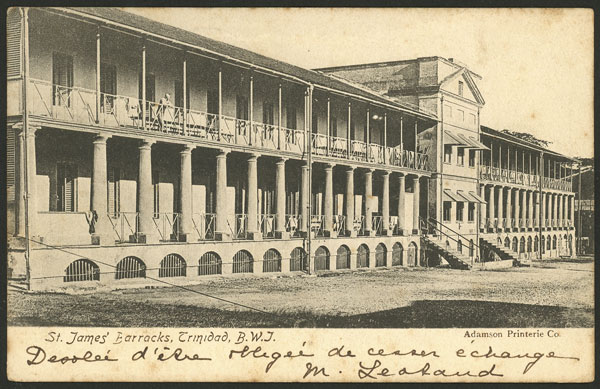 St. James' Barracks, Trinidad, B.W.I.
Adamson Printerie Co.
Desolée d'être obligée de cesser échange
M. Leotaud